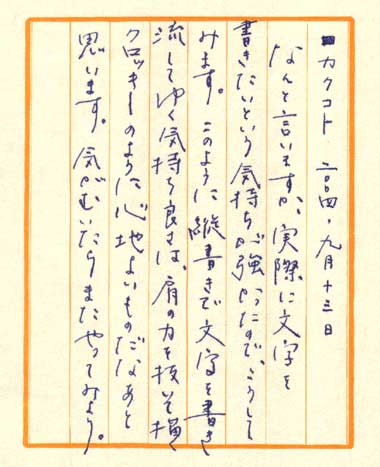 ■カクコト 二〇〇四・九月十三日
なんと言いますか、実際に文字を
書きたいという気持ちが強かったので、こうして
みます。このように縦書きで文字を書き
流してゆく気持ち良さは、肩の力を抜いて描く
クロッキーのように心地よいものだなあと
思います。気がむいたらまたやってみよう。